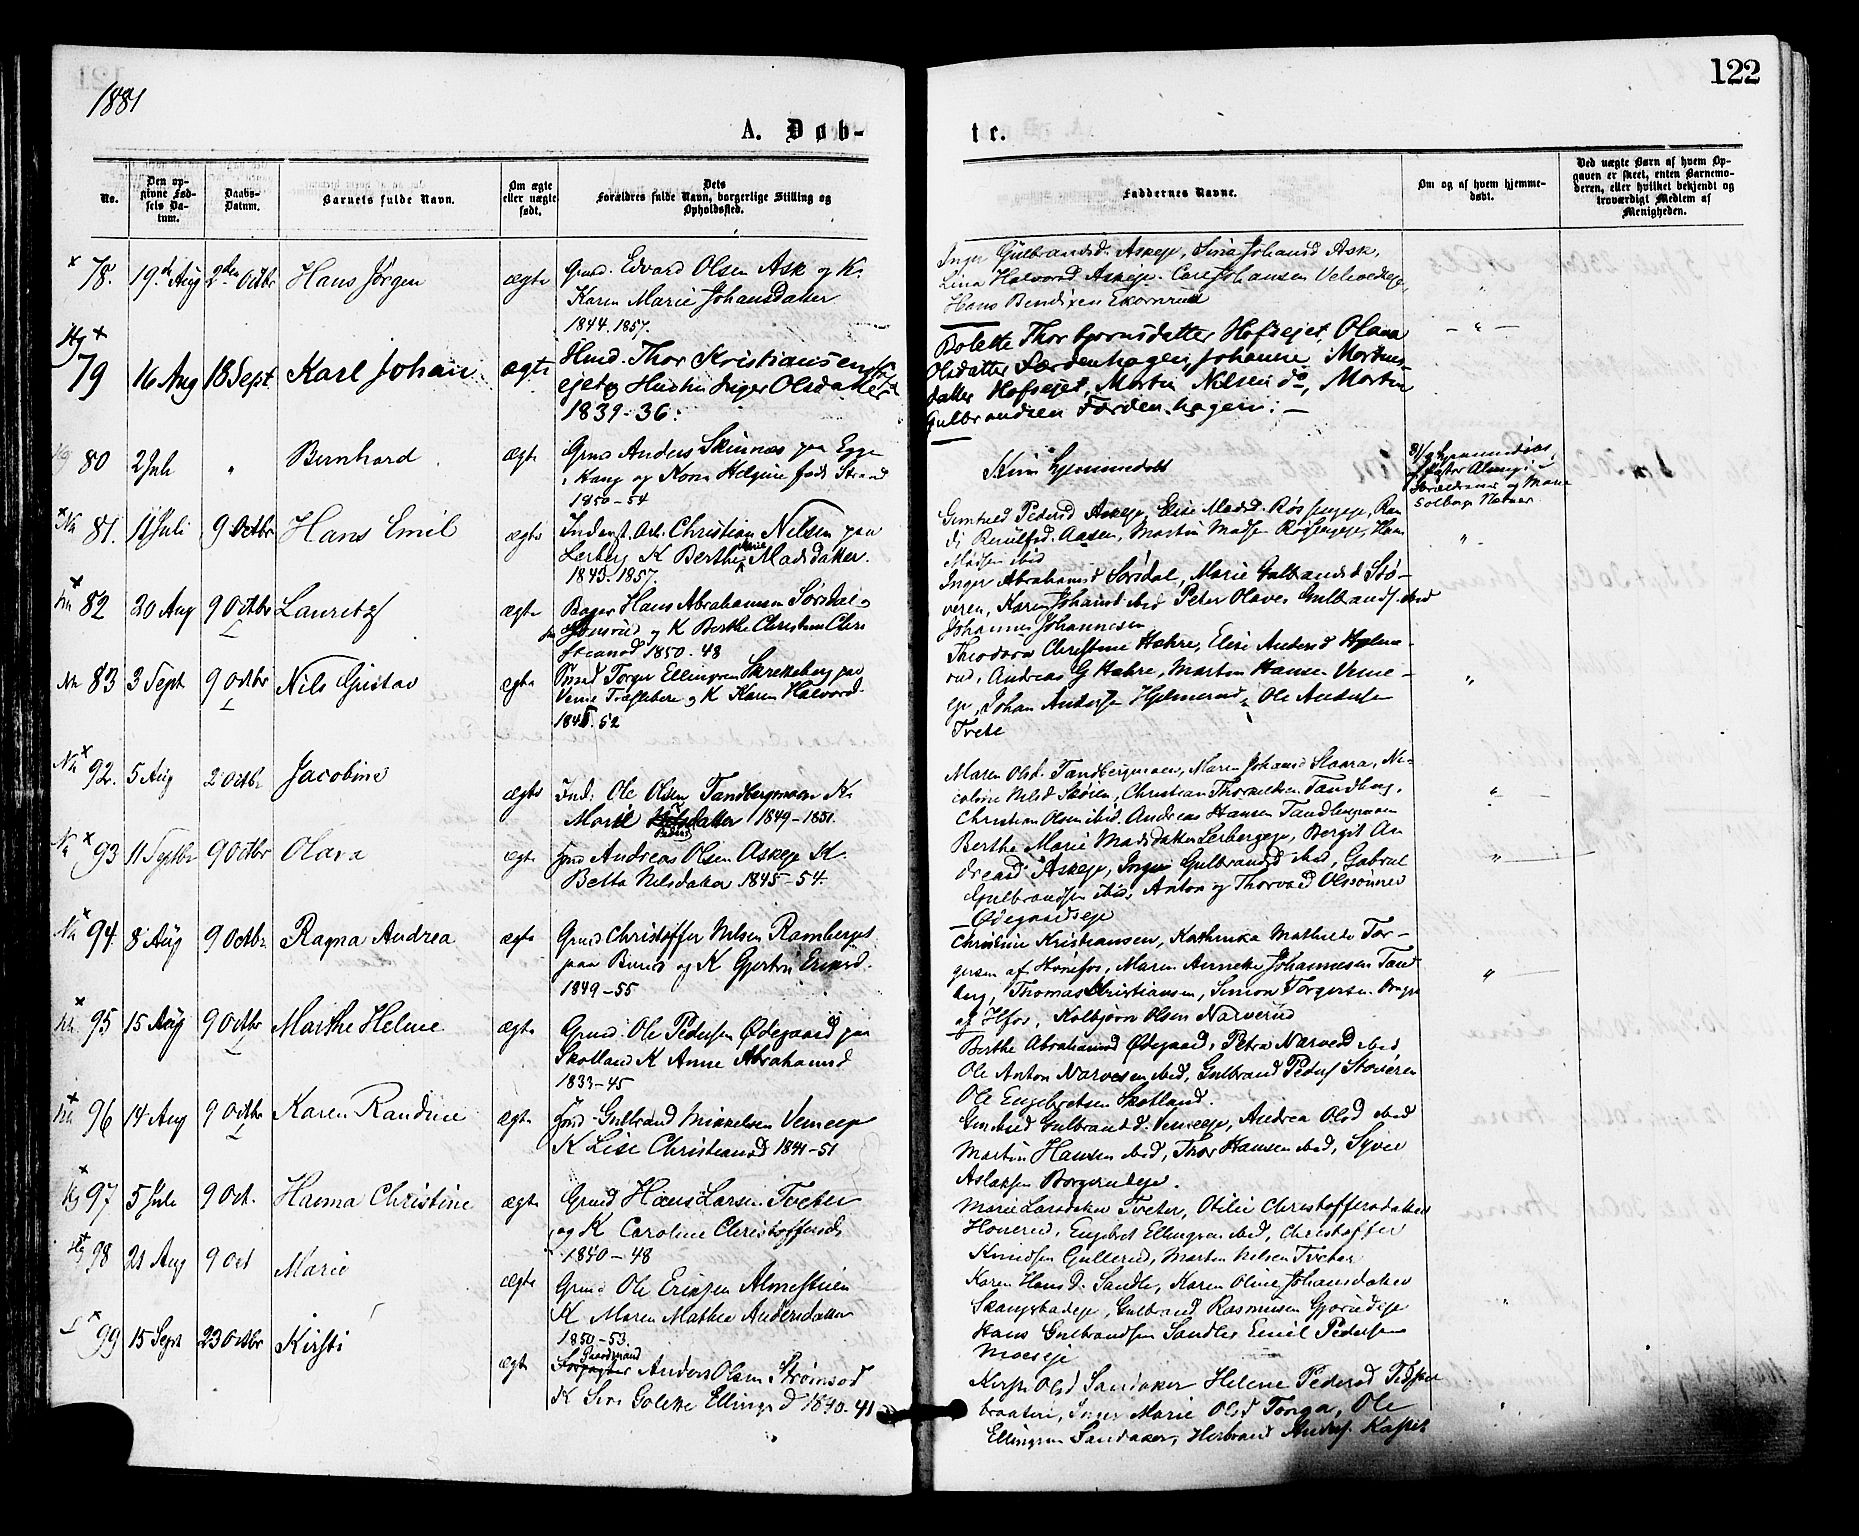 1881
122
A. Døb-
te.
No.
Den op-
givne Fød-
sels Da-
tum.
Daabs-
Datum.
Barnets fulde Navn.
Om ægte
eller uægte
født.
Dets
Forældres fulde Navn, borgerlige Stilling og
Opholdssted.
Faddernes Navne.
Om og af hvem hjemme-
døbt.
Ved uægte Børn af hvem Op-
gaven er skeet, enten Barnemo-
deren, eller hvilket bekjendt og
troværdigt Medlem af
Menigheden.
78. 19de Aug 2den Octbr Hans Jørgen ægte Grmd. Edvard Olsen Ask og K.
Karen Marie Johansdatter
1844. 1857.
Inger Gulbrandsd. Askeje, Sina Johansd Ask,
Lina Halvorsd Askeje.
Hans Bendixen
79 16 Aug 18 Sept Karl Johan ægte Husmd. Thor Kristiansen
ejet og Hustru Inger Olsdatter
1839-36:
Bolette Thorbjørnsdatter Hofsejet, Olava
Olsdatter Færdenhagen, Johanne Mortens-
datter Hofsejet, Martin Nilsen do, Martin
Gulbrandsen Færdenhagen: -
80 2 Juli " Bernhard ægte Grmd Anders Skinnæs paa Egge
og Kona Helgine født Strand
1850-54
Kun hjemmedøbt
og Marie
Solberg Næsner
81. 11 Juli 9 Octbr Hans Emil ægte Inderst. Arb. Christian Nilsen paa
Lerberg K Berthe Marie Madsdatter.
1843. 1857.
Pedersd Askeje, Elise Madsd.
Aasen, Martin Madsen
Madsen ibid
82 20 Aug 9 Octbr Lauritz ægte Bager Hans Abrahamsen Sørsdal
og K Berthe Christine Chri
stiansd 1850-48
Inger Abrahamsd Sørsdal, Marie Gulbrandsd Stø-
veren, Karen Johansd ibid Peter Olaves Gulbrands. ibid
Johannes Johannesen
83 3 Sept 9 Octbr Nils Gustav ægte Torger Ellingsen Skrekeberg paa
Veme Træsliberi og K Karen Halvorsd.
52
Theodora Christine Hahre, Elise Andersd Hjelme-
rud, Andreas G Hahre, Martin Hansen Veme-
eje, Johan Andersen Hjelmerud, Ole Andersen
Tvete
92. 5 Aug 2 Octbr Jacobine ægte Ind. Ole Olsen Tandbergmoen K.
Marie datter 1849-1851.
Maren Olsd. Tandbergmoen, Maren Johansd Skaara, Ni-
coline Nilsd Skøien, Christian Tandberg,
Christian Olsen ibid. Andreas Hansen Tandbergmoen
93 11 Septbr 9 Octbr Olava ægte Andreas Olsen Askeje K.
Betta Nilsdatter 1845-54.
Berthe Marie Madsdatter Lerbergeje, Bergit An
dreasd Askeje, Inger Gulbrandsd ibid, Gabriel
Gulbrandsen ibid, Anton og Thorvald Olssønner
Ødegaardseje
94. 8 Aug 9 Octbr Ragna Andrea ægte Grmd Christoffer Nilsen Ramberget
paa og K
1849-55
Christine Kristiansen, Kathinka Mathilde Tor-
gersen af Hønefos, Maren Annette Johannesen Tand
berg, Thomas Kristiansen, Simon Torgersen
af Hfos, Kolbjørn Olsen Narverud
95 15 Aug 9 Octbr Marthe Helene ægte Grmd. Ole Pedersen Ødegaard paa
Skotland K Anne Abrahamsd
1833-45
Berthe Abrahamsd Ødegaard, Petra ibid
Ole Anton Narvesen ibid, Gulbrand Peders Støveren
Ole Engebretsen Skotland.
96 14 Aug 9 Octbr Karen Randine ægte Gulbrand Mikkelsen Vemeeje
K Lise Christiansd 1841-51
Gulbrandsd. Vemeeje, Andrea Olsd ibid
Martin Hansen ibid, Thor Hansen ibid, Syver
Aslaksen Borgerudeje.
97 5 Juli 9 Oct. Hanna Christine ægte Grmd Hans Larsen Tveter
og K Caroline Christoffersd.
1840-48
Marie Larsdatter Tveter, Otilie Christoffersdatter
Honerud, Engebret Ellingsen ibid, Christoffer
Knudsen Gullerud, Martin Nilsen Tveter
98 21 Aug 9 Oct Marie ægte Grmd Ole Eriksen Almestuen
K Maren Mathea Andersdatter
1850-53.
Karen Hansd. Sandler, Karen Oline Johansdatter
Gulbrand Rasmussen
Hans Gulbrandsen Sandler Emil Pedersen
Moeseje
99 15 Sept 23 Octbr Kirsti ægte Gaardmand
Anders Olsen Strømsod
K Siri Golette Ellingsd 1840-41
Olsd Sandaker Helene Pedersd
braaten, Inger Marie Olsd Tonga, Ole
Ellingsen Sandaker, Herbrand Anders.